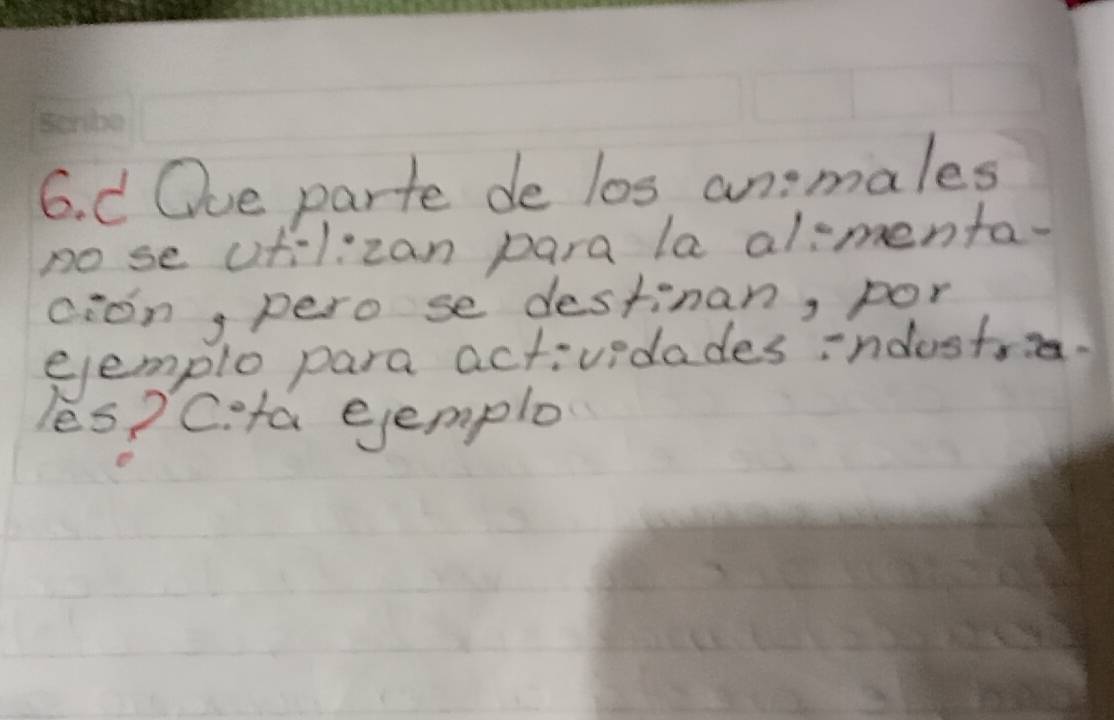 Scribe
6.d Que parte de los animales
no se utilizan para la alimenta-
ción, pero se destinan, por
ejemplo para actividades industria-
les? Cita ejemplo